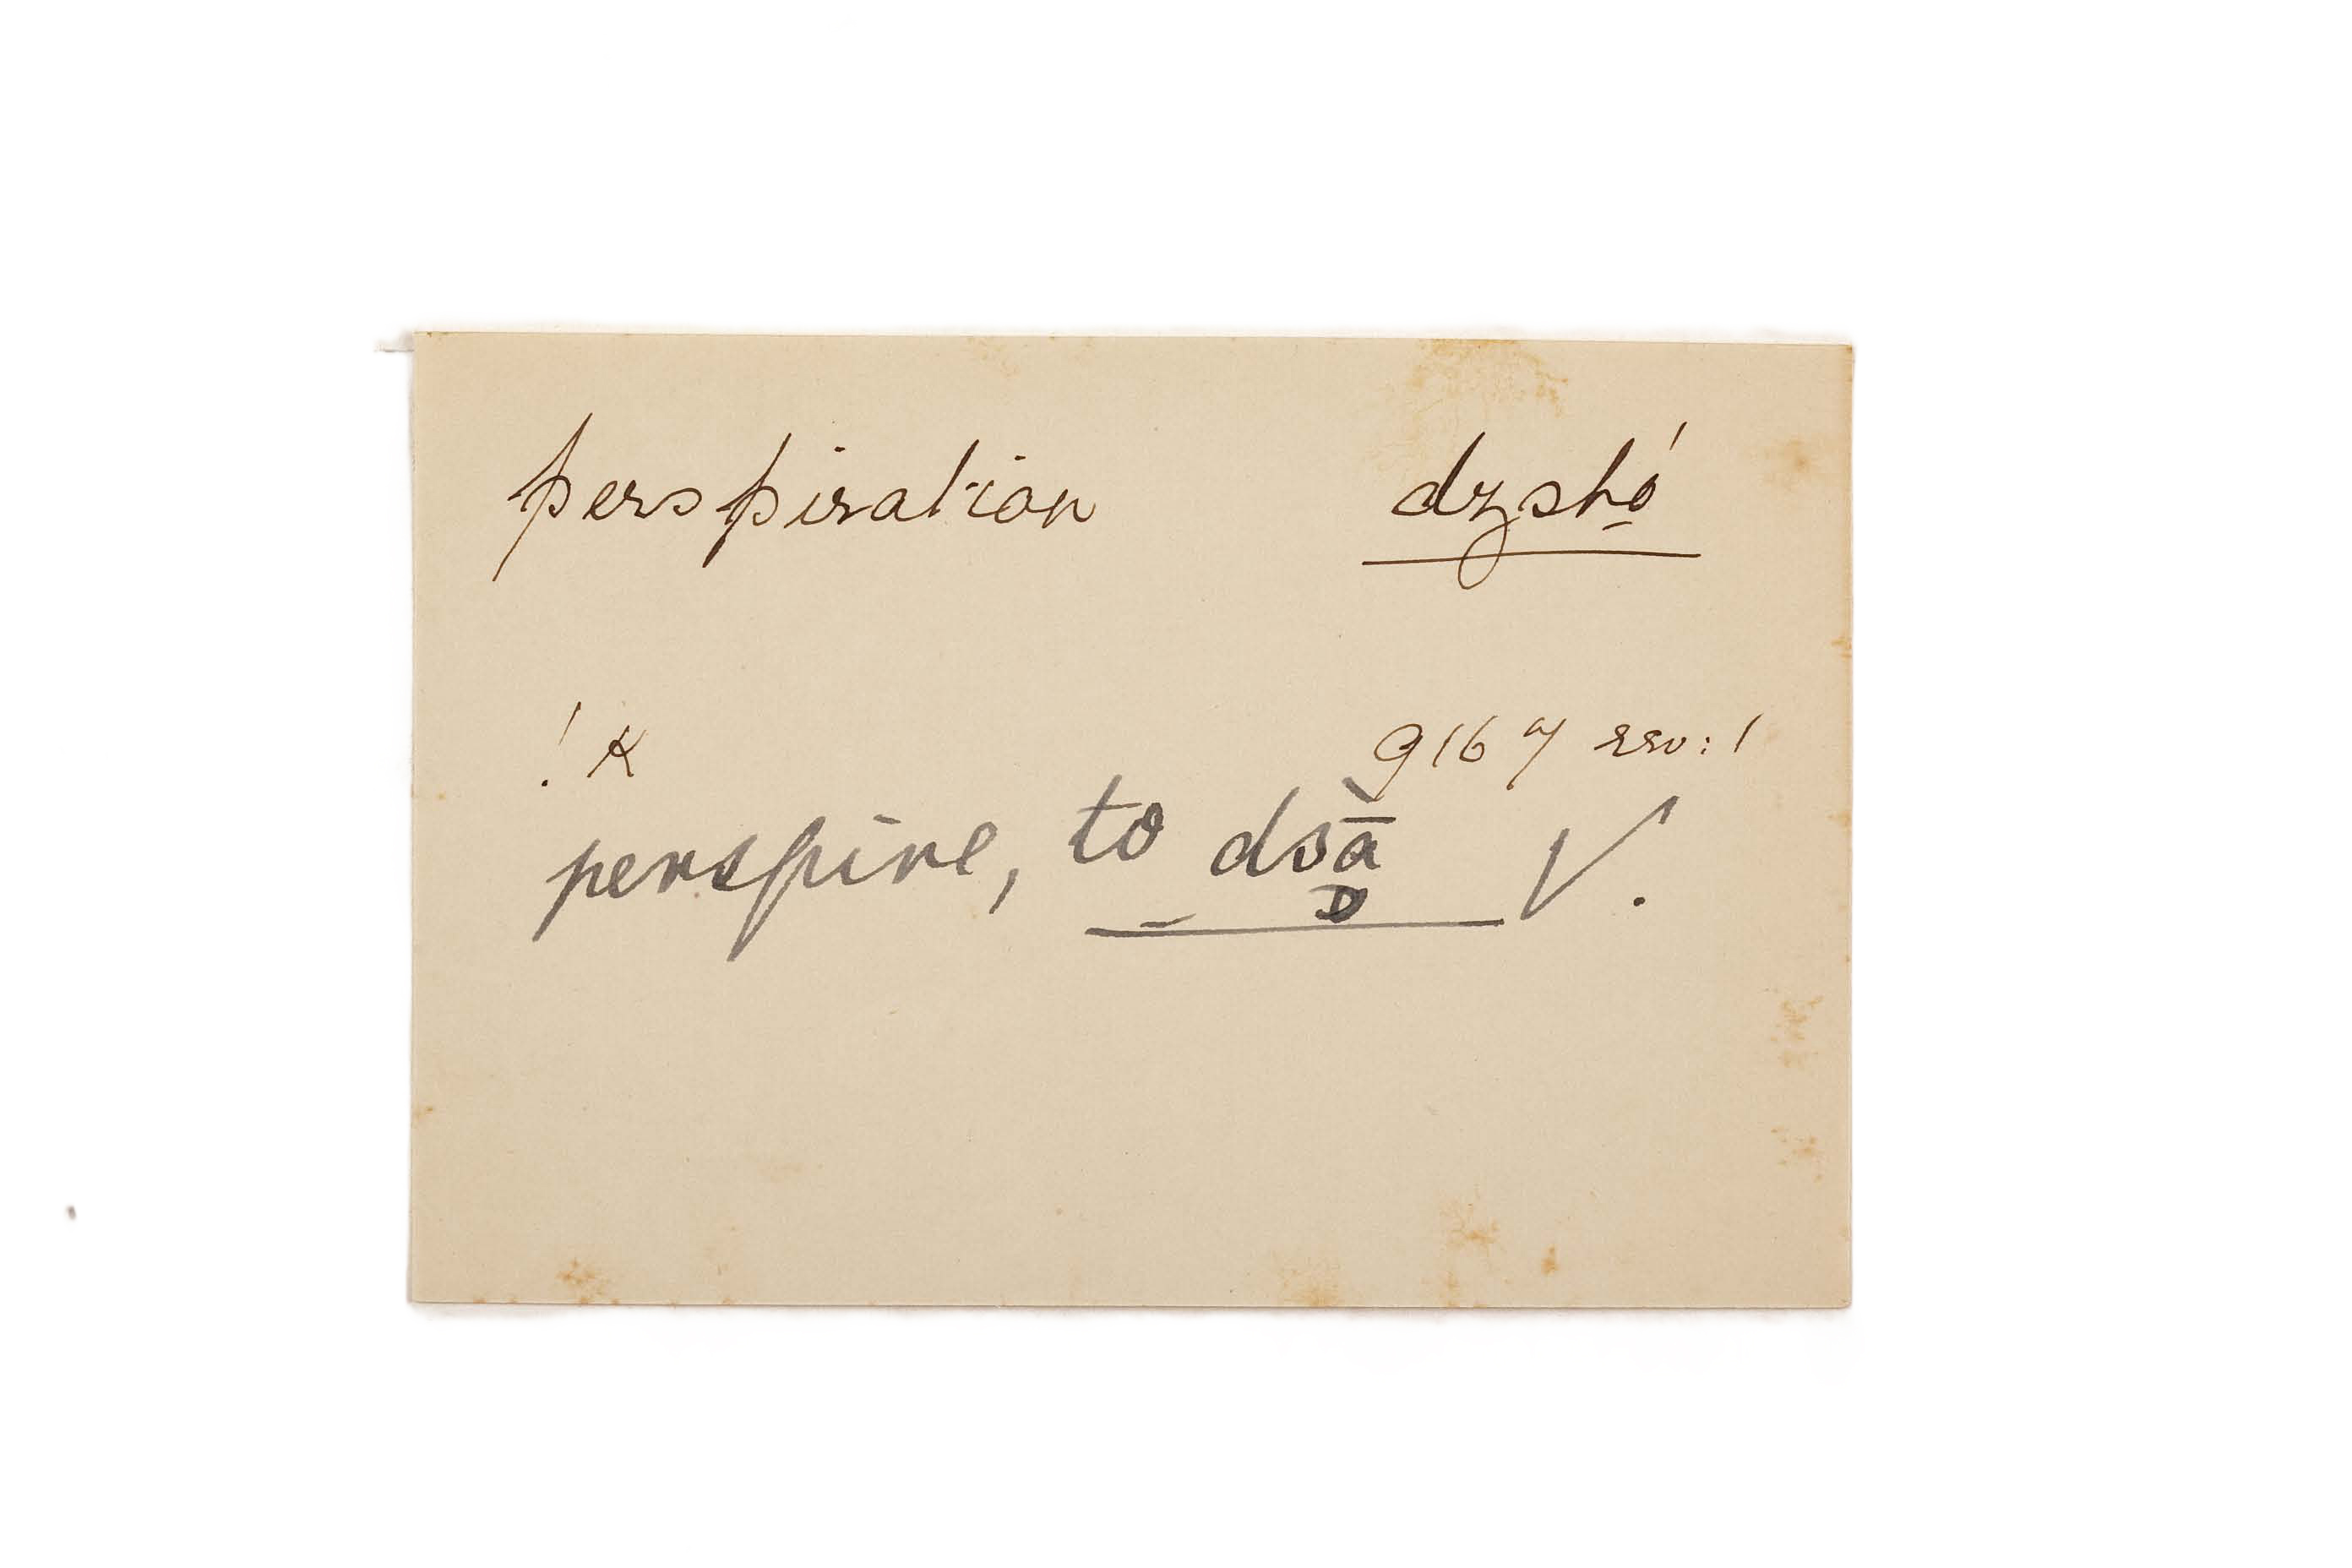 perspiration dzshó̱
! K 9167 rev: 1
perspire, to dsā̀ V.